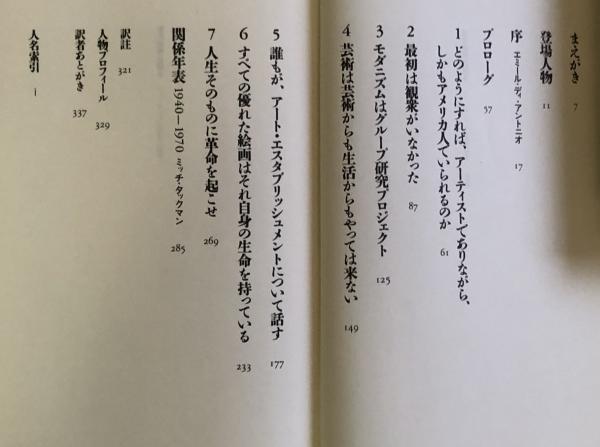 まえがき 7
登場人物 11
序 エミール・ディ・アントニオ 17
プロローグ 57
1 どのようにすれば、アーティストでありながら、
しかもアメリカ人でいられるのか 61
2 最初は観衆がいなかった 87
3 モダニズムはグループ研究プロジェクト 125
4 芸術は芸術からも生活からもやっては来ない 149
5 誰もが、アート・エスタブリッシュメントについて話す 177
6 すべての優れた絵画はそれ自身の生命を持っている 233
7 人生そのものに革命を起こせ 269
関係年表 1940—1970 ミッチ・タックマン 285
訳註 321
人物プロフィール 329
訳者あとがき 337
人名索引 i